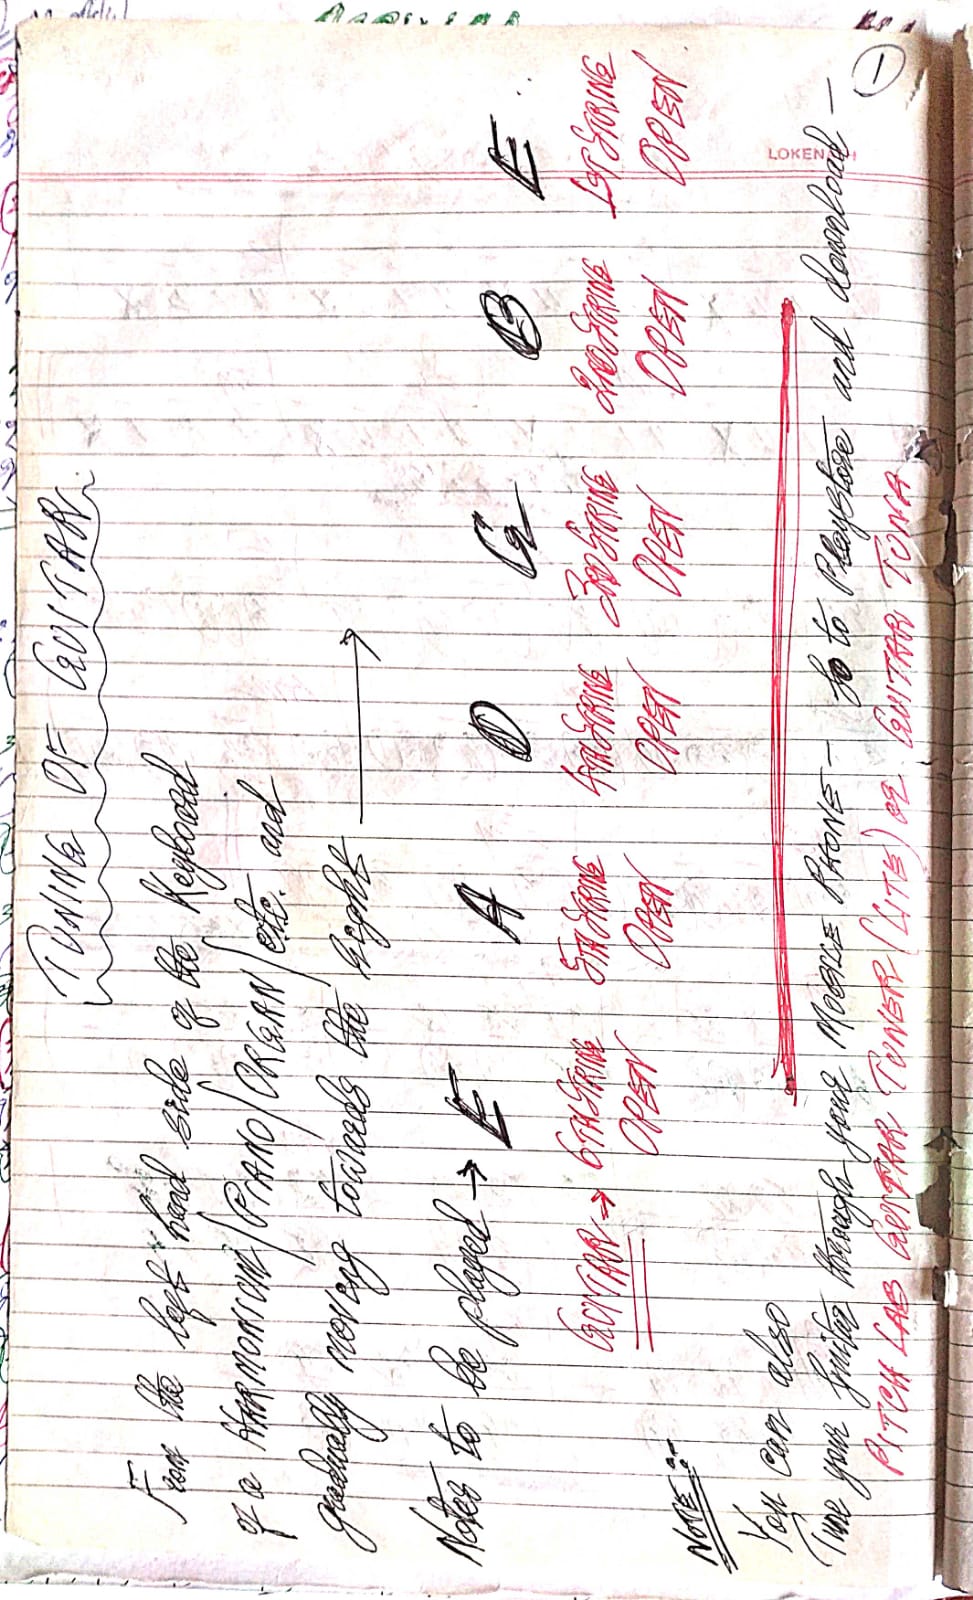 TUNING OF GUITAR
From the left hand side of the Keyboard
of a HARMONIUM/PIANO/ORGAN/etc. and
gradually moving towards the right →
Notes to be played → E A D G B E
GUITAR → 6TH STRING 5TH STRING 4TH STRING 3RD STRING 2ND STRING 1ST STRING
OPEN OPEN OPEN OPEN OPEN OPEN
NOTE :-
You can also
Tune your guitar through your MOBILE PHONE - Go to Playstore and download -
PITCH LAB GUITAR TUNER (LITE) or GUITAR TUNA
1
LOKEN